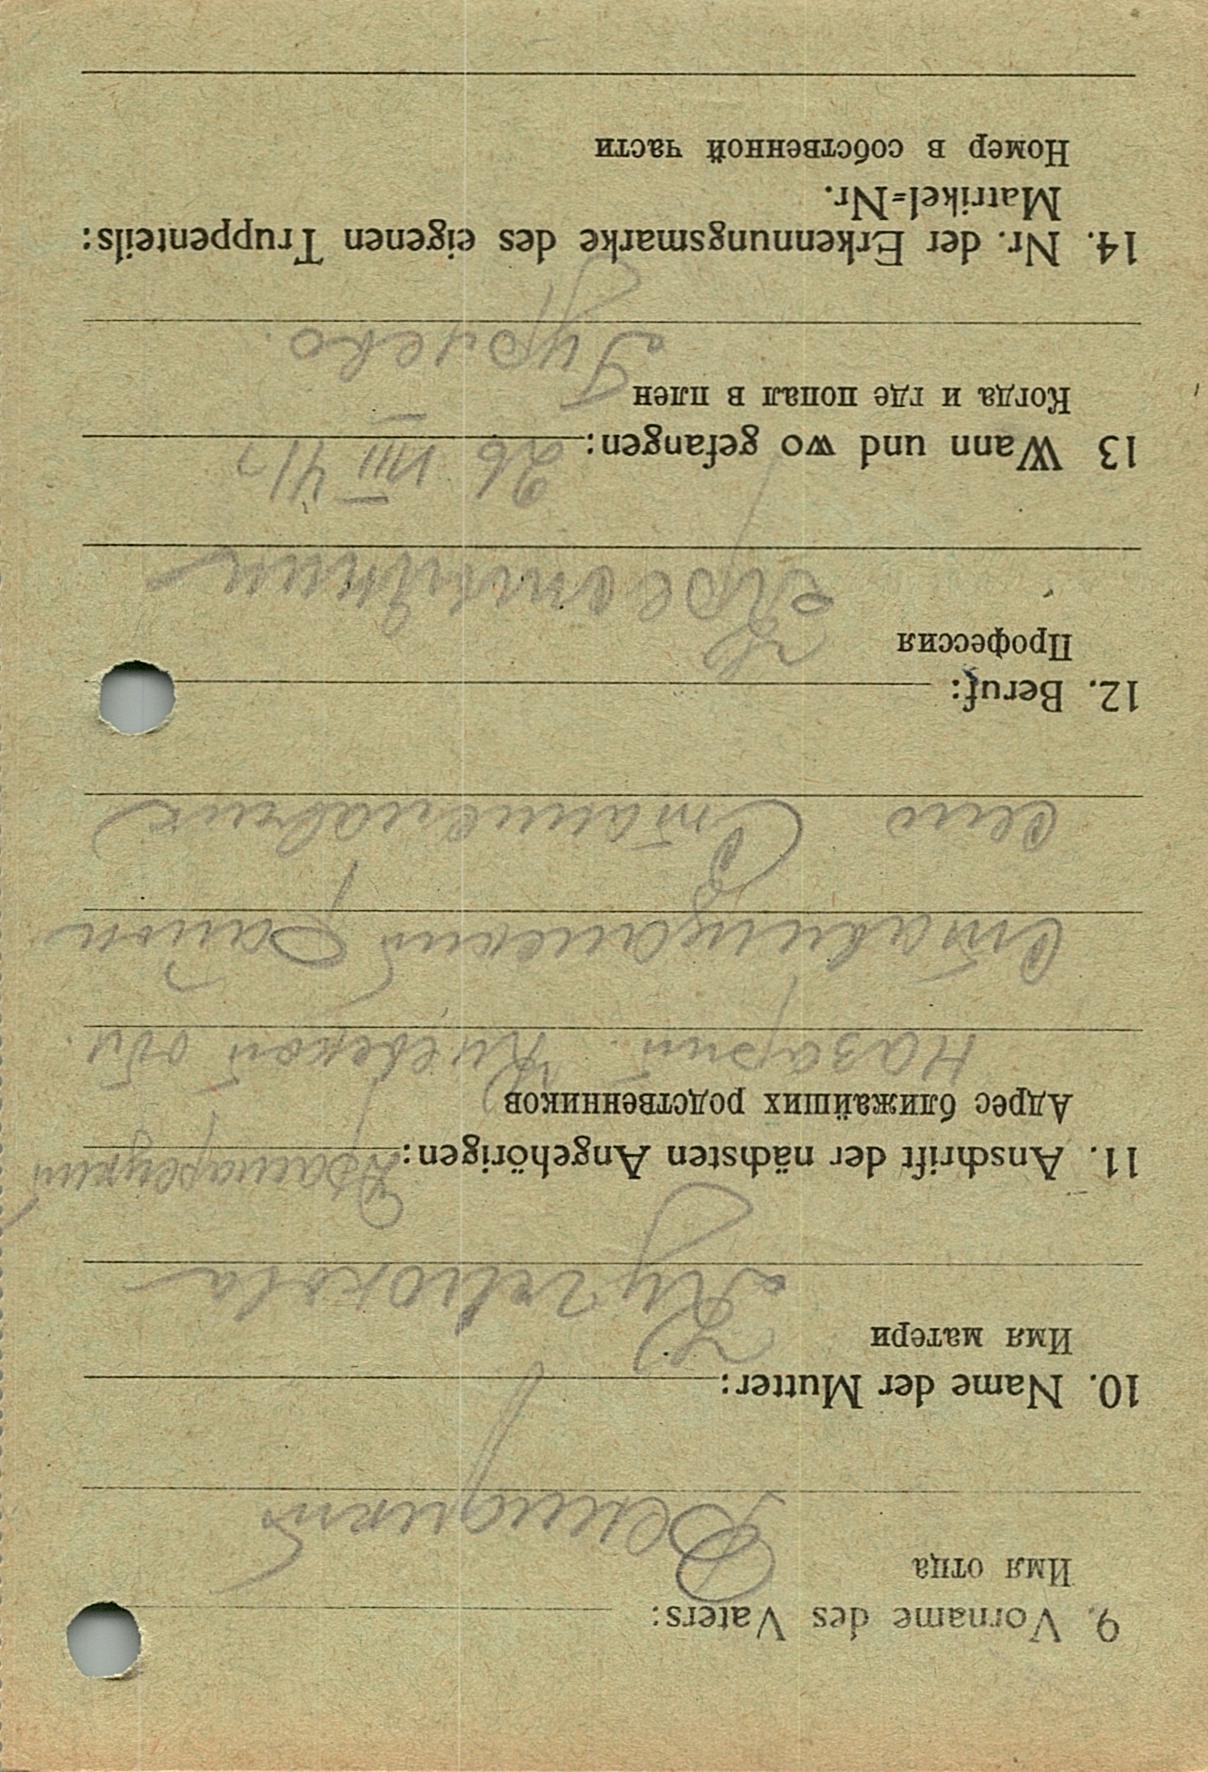 9. Vorname des Vaters:
Имя отца
10. Name der Mutter:
Имя матери
11. Anschrift der nächsten Angehörigen:
Адрес ближайших родственников
Назарий. Киевской обл.
Ставищанский район
село
12. Beruf:
Профессия
13 Wann und wo gefangen: 26 VIII 41
Когда и где попал в плен
14. Nr. der Erkennungsmarke des eigenen Truppenteils:
Matrikel=Nr.
Номер в собственной части